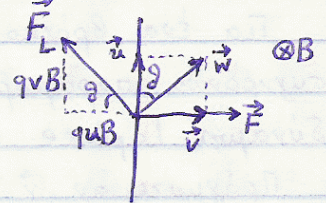 F⃗_L u⃗ w⃗ ⊗B⃗
qvB ∂ ∂
quB v⃗ F⃗